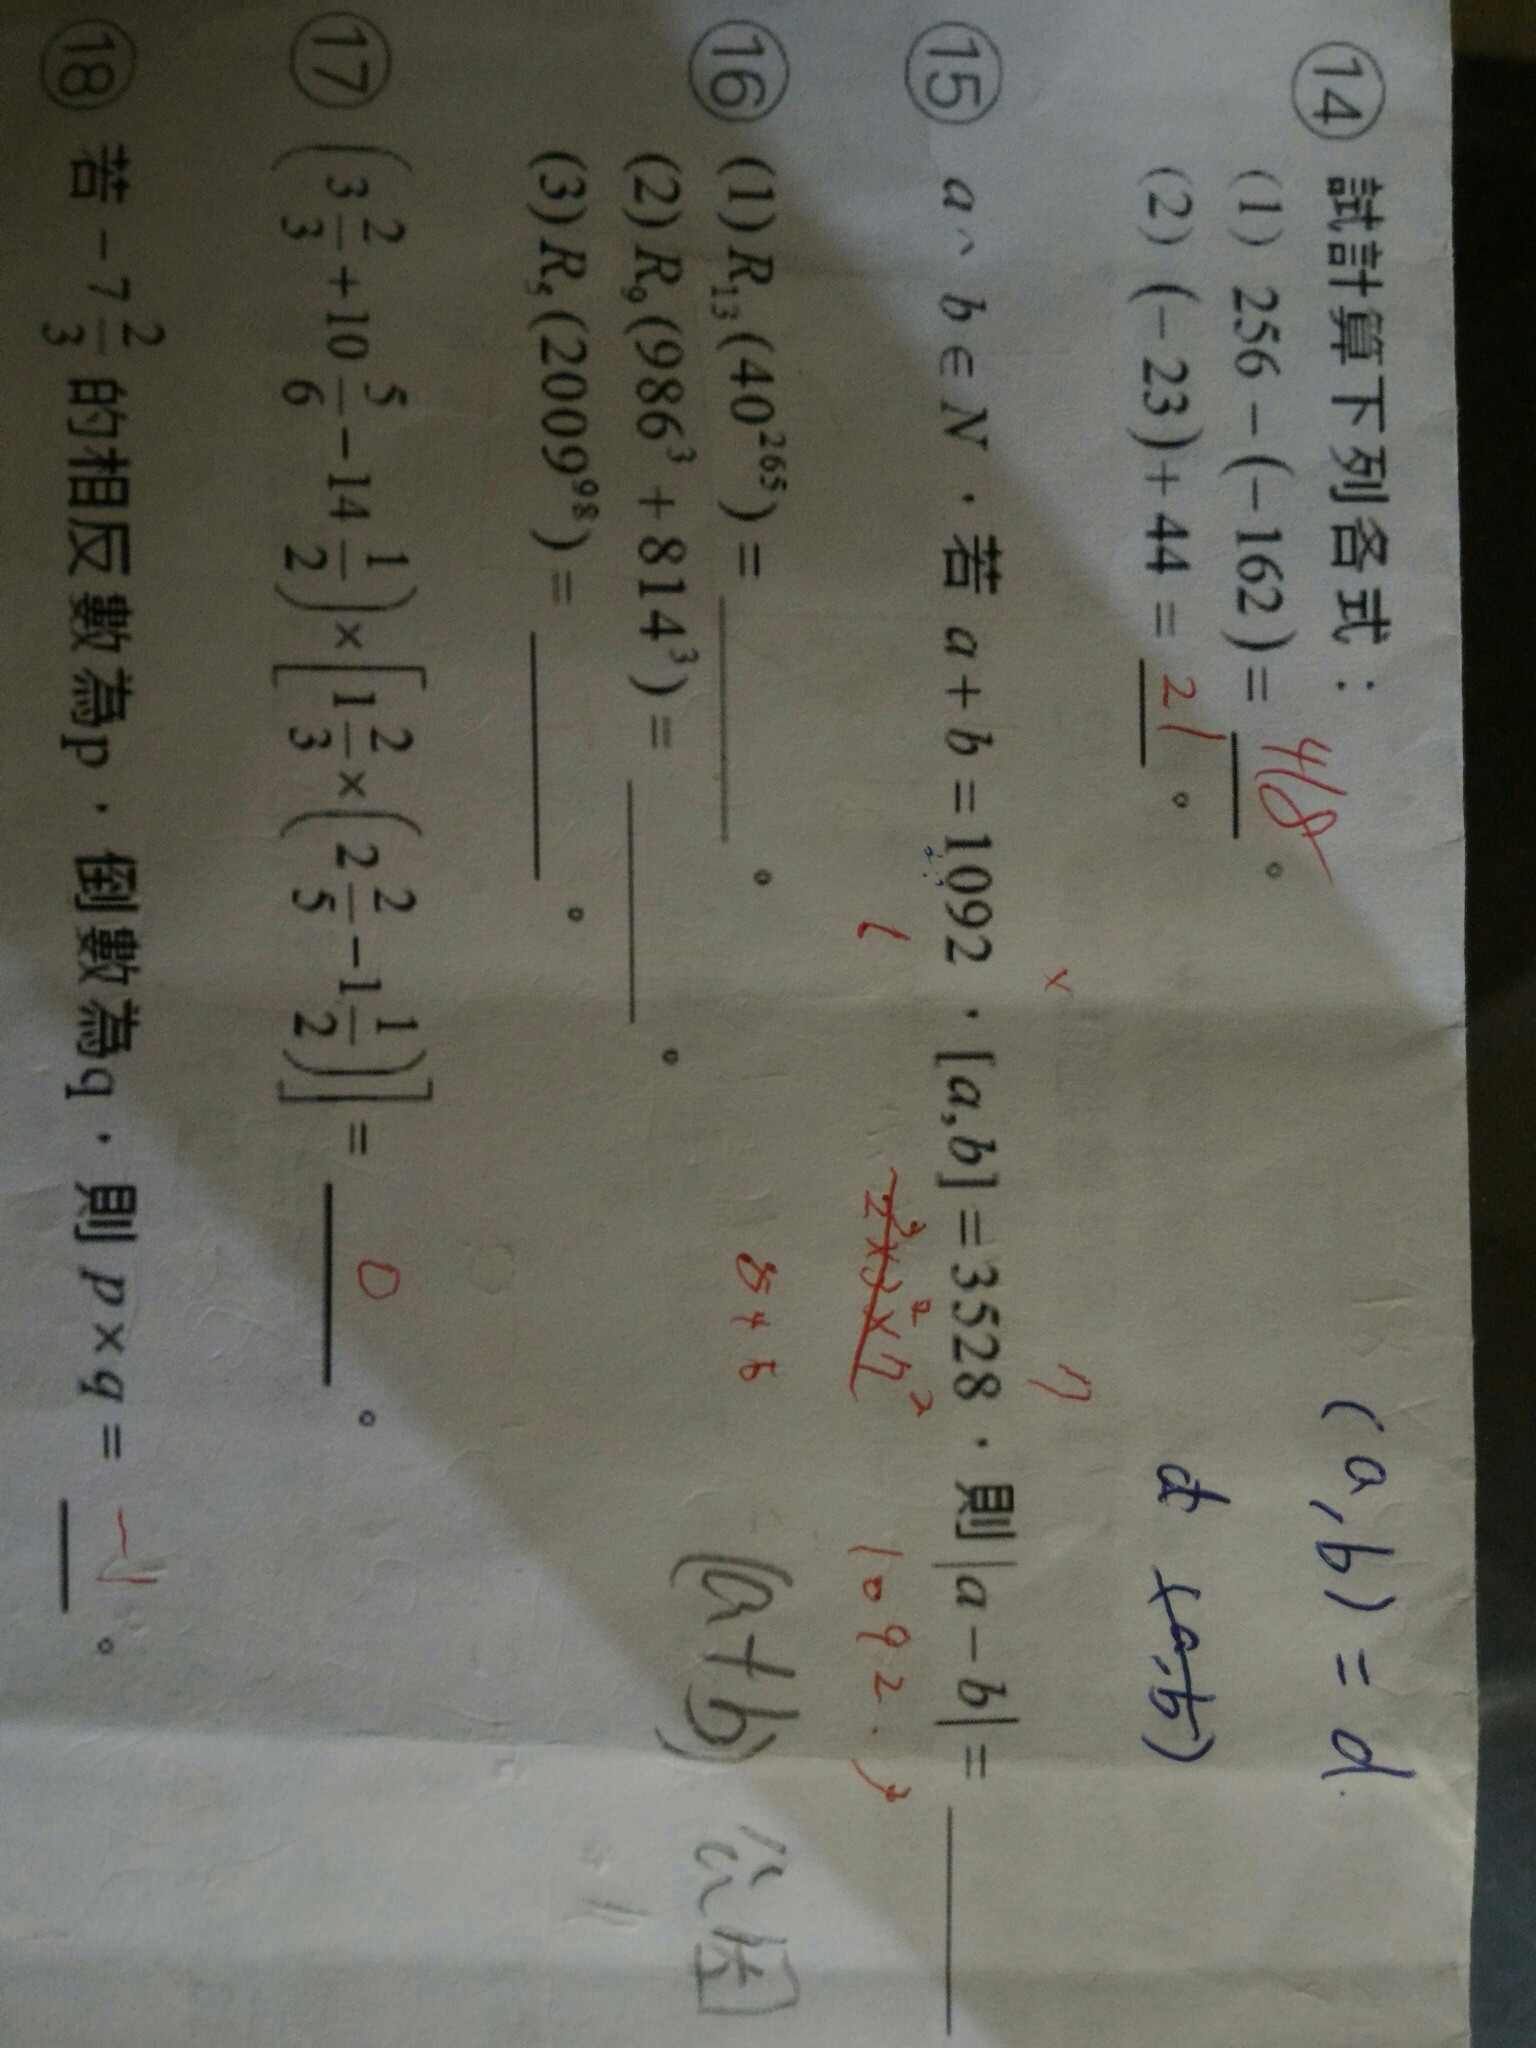 (a,b)=d.
⑭ 試計算下列各式：
(1) 256-(-162)= 418 。
(2) (-23)+44= 21 。
d (a,b)
⑮ a、b∈N，若a+b=1092，[a,b]=3528，則|a-b|=
2³×3²×7² 1092
⑯ (1) R₁₃(40²⁶⁵)= ______ 。
(a+b) 公因
(2) R₉(986³+814³)= ______ 。
(3) R₅(2009⁹⁸)= ______ 。
⑰ (3 2/3+10 5/6-14 1/2)×[1 2/3×(2 2/5-1 1/2)]= 0 。
⑱ 若-7 2/3的相反數為p，倒數為q，則p×q= -1 。